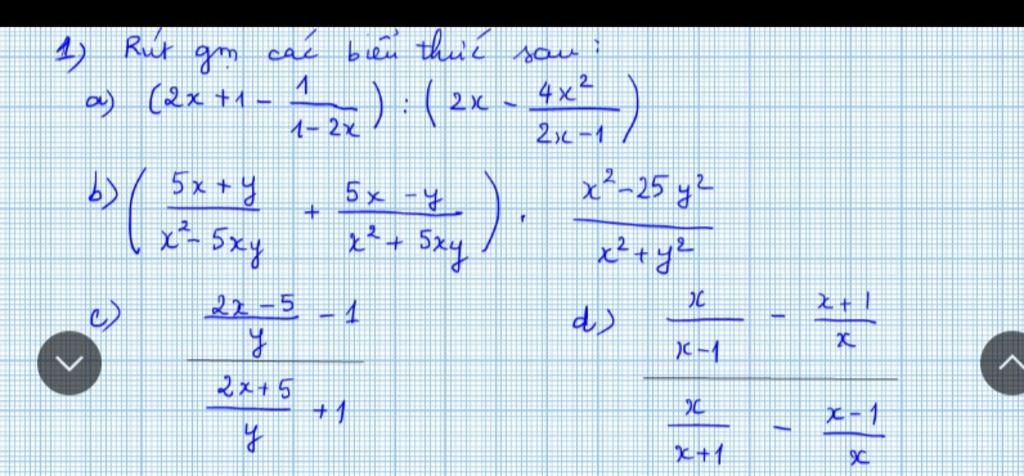 1) Rút gọn các biểu thức sau :
a) (2x + 1 - 1/(1 - 2x)) : (2x - 4x²/(2x - 1))
b) ((5x + y)/(x² - 5xy) + (5x - y)/(x² + 5xy)) . (x² - 25y²)/(x² + y²)
c) ((2x - 5)/y - 1)/((2x + 5)/y + 1)
d) (x/(x - 1) - (x + 1)/x)/(x/(x + 1) - (x - 1)/x)